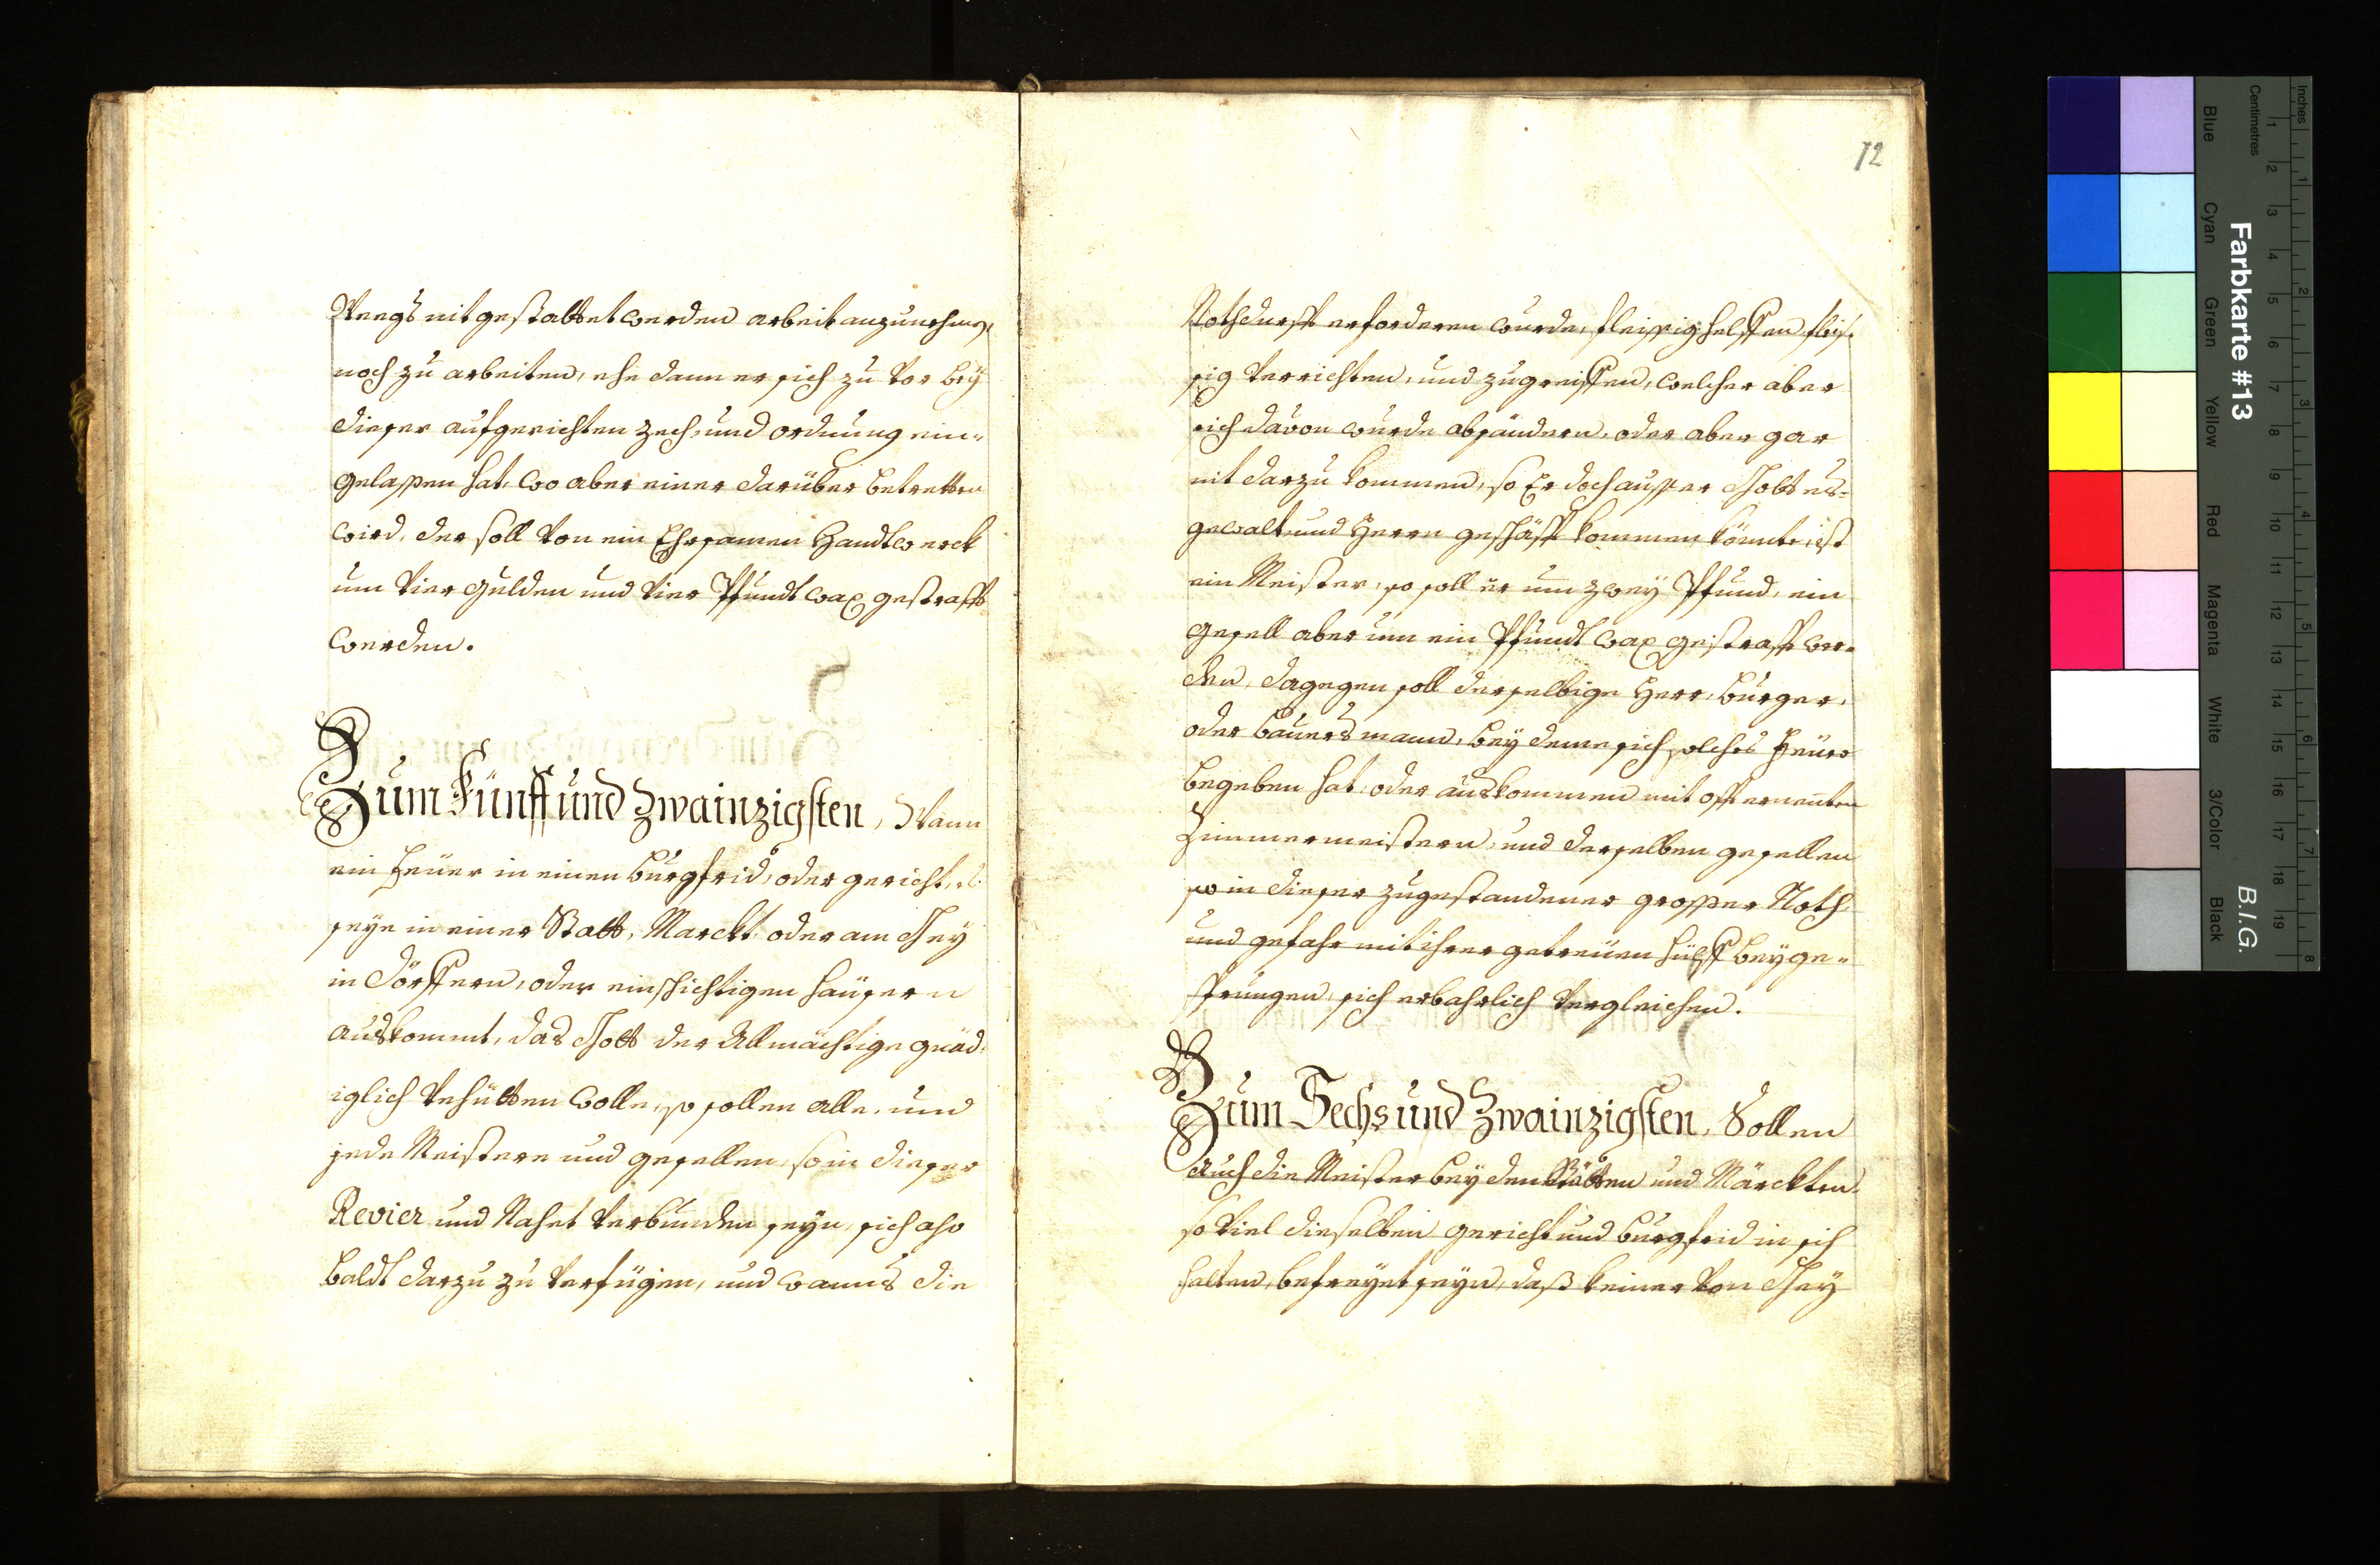 Weegs nit gestattet werden arbeit anzunehmen,
noch zu arbeiten, ehe dann er sich zu vor beÿ
dieser aufgerichten Zech, und ordnung ein„
gelassen hat, wo aber einer darüber betretten
wird, der soll von ein Ehrsamen Handtwerck
um vier Gulden und vier Pfundt wax gestrafft
werden.
Zum Fünff und Zwainzigsten, Wann
ein Feüer in einen burgfrid, oder gericht, es
seye in einer Statt, Marckt oder am Geÿ
in Dörffern, oder einschichtigen häüsern
auskommt, das Gott der Allmächtige gnäd„
iglich vehütten wolle, so sollen alle, und
jede Meistere und gesellen, so in dieser
Revier und Nahet verbunden seyn, sich also
baldt darzu zu verfügen, und wanns die
12
Nothdurfft erforderen wurde, fleissig helffen, fleis„
sig verrichten, und zugreiffen, welcher aber
sich davon wurde absändern, oder aber gar
nit darzu kommen, so Er doch ausser Gottes„
gewalt und Herrn geschäfft kommen könnte, ist
ein Meister, so soll er um zweÿ Pfund, ein
gesell aber um ein Pfundt wax gestrafft wer„
den, dagegen soll derselbige Herr, burger,
oder bauersmann, beÿ deme sich solches Feüer
begeben hat, oder auskommen mit offt ernenten
Zimmermeistern, und derselben gesellen
so in dieser zugestandener grosser Noth„
und gefahr mit ihrer getreüen hülff beÿge„
sprungen, sich erbahrlich vergleichen.
Zum Sechs und Zwainzigsten, Sollen
Auch die Meister beÿ den Stätten und Märckten,
so viel dieselben gericht und burgfrid in sich
halten, befreÿet seyn, daß keiner von Geÿ
Farbkarte #13
B.I.G.
Inches
Centimetres
Blue
Cyan
Green
Yellow
Red
Magenta
White
3/Color
Black
1 2 3 4 5 6 7 8
1 2 3 4 5 6 7 8 9 10 11 12 13 14 15 16 17 18 19